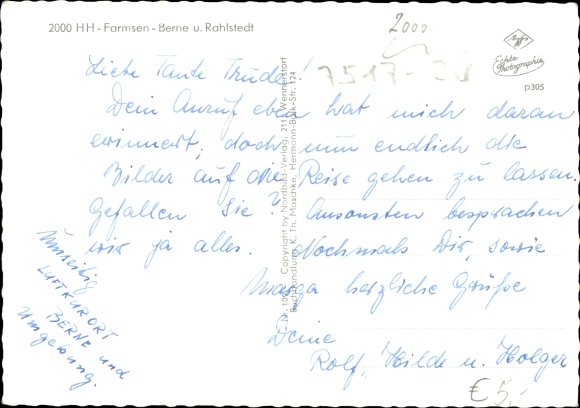 2000 HH - Farmsen - Berne u. Rahlstedt
2000
Agfa
Echte
Photographie
p305
7517-30
Liebe Tante Trude!
Dein Anruf eben hat mich daran
erinnert, doch nun endlich die
Bilder auf die Reise gehen zu lassen.
Gefallen Sie? Ansonsten besprachen
wir ja alles. Nochmals Dir, sowie
Marga herzliche Grüße
Deine
Rolf, Hilde u. Holger
LUFTKURORT
BERNE und
Umgebung.
Copyright by Nordbild-Verlag, 2111 Wennerstorf
Buchhandlung K. Th. Maschke, Hermann-Balk-Str. 124
€ 5,-